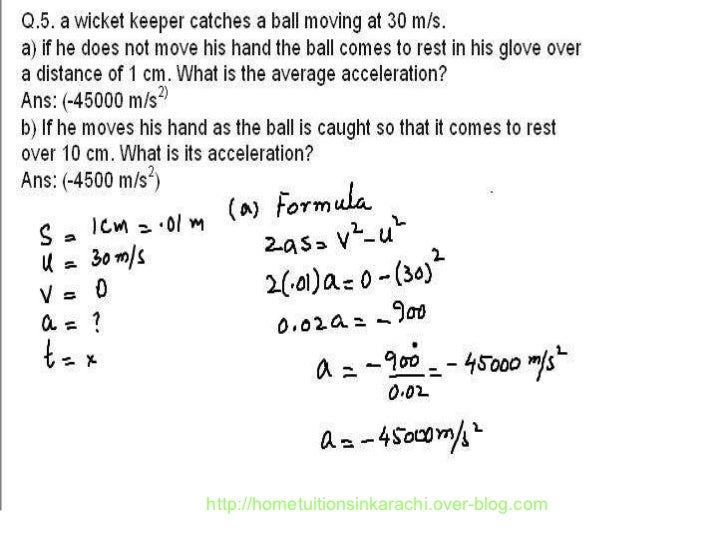 Q.5. a wicket keeper catches a ball moving at 30 m/s.
a) if he does not move his hand the ball comes to rest in his glove over
a distance of 1 cm. What is the average acceleration?
Ans: (-45000 m/s²⁾
b) If he moves his hand as the ball is caught so that it comes to rest
over 10 cm. What is its acceleration?
Ans: (-4500 m/s²)
S = 1cm = .01 m
u = 30 m/s
v = 0
a = ?
t = x
(a) Formula
2as = v² - u²
2(.01)a = 0 - (30)²
0.02a = -900
a = -900/0.02 = -45000 m/s²
a = -45000 m/s²
http://hometuitionsinkarachi.over-blog.com